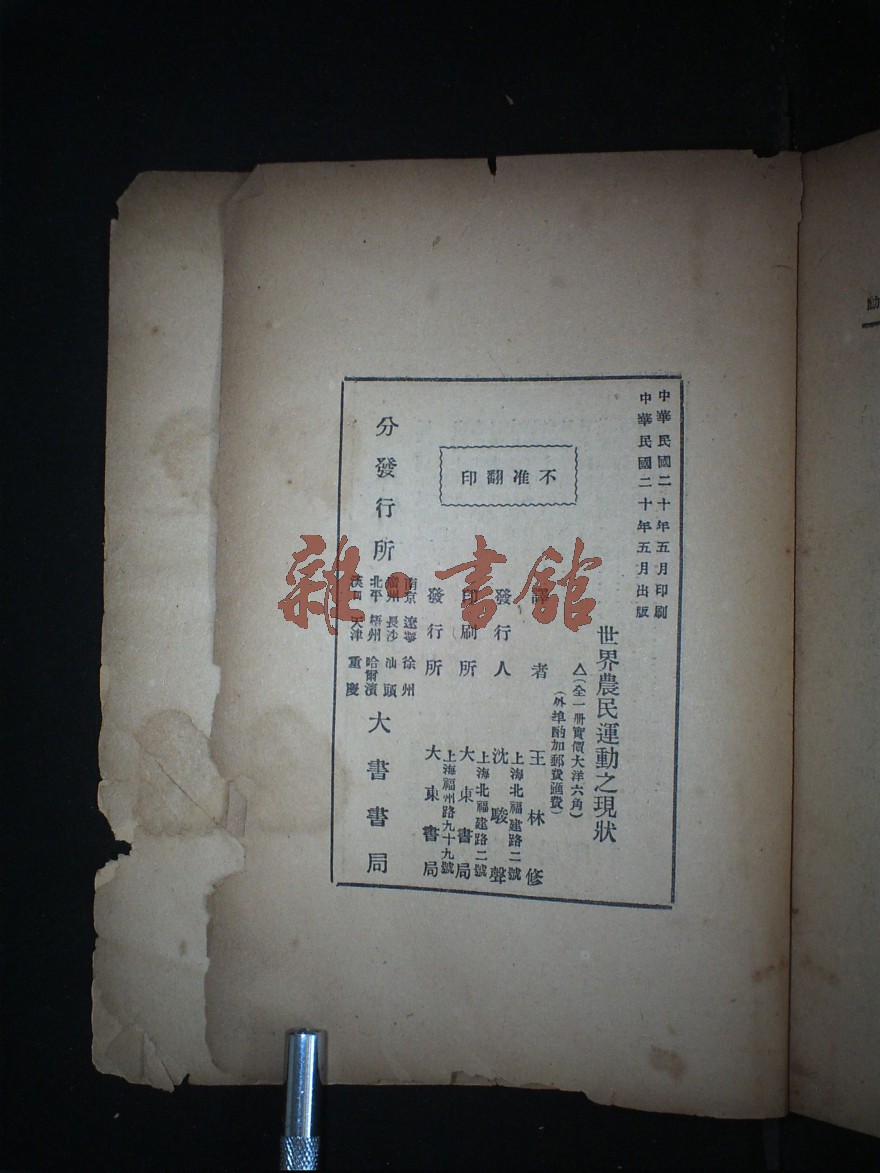 中華民國二十年五月印刷
中華民國二十年五月出版
世界農民運動之現狀
△(全一册實價大洋六角)
(外埠酌加郵費滙費)
譯者 王林修
上海北福建路二號
發行人 沈駿聲
上海北福建路二號
印刷所 大東書局
上海福州路九十九號
發行所 大東書局
不准翻印
南京 遼寧 徐州
廣州 長沙 汕頭
北平 梧州 哈爾濱
漢口 天津 重慶
分發行所 大書書局
雜·書館